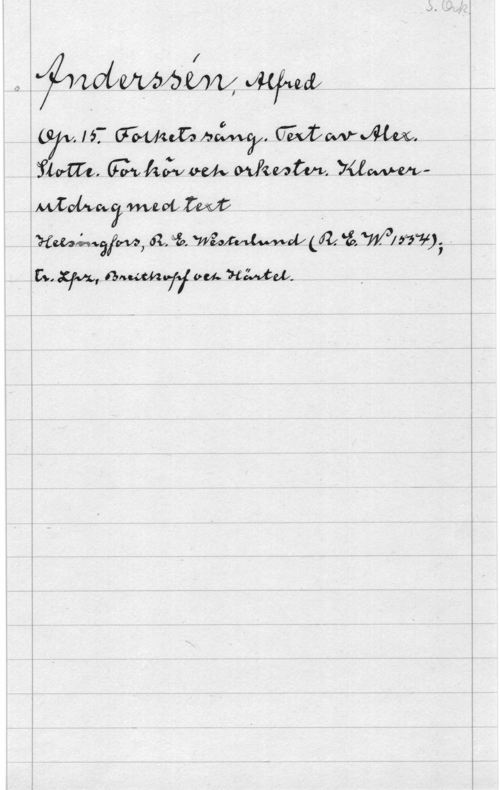 S. Ork.
Anderssén, Alfred
Op. 15. Folkets sång. Text av Alex.
Slotte. För kör och orkester. Klaver-
utdrag med text
Helsingfors, R. E. Westerlund (R. E. W 1554);
tr. Lpz, Breitkopf och Härtel.